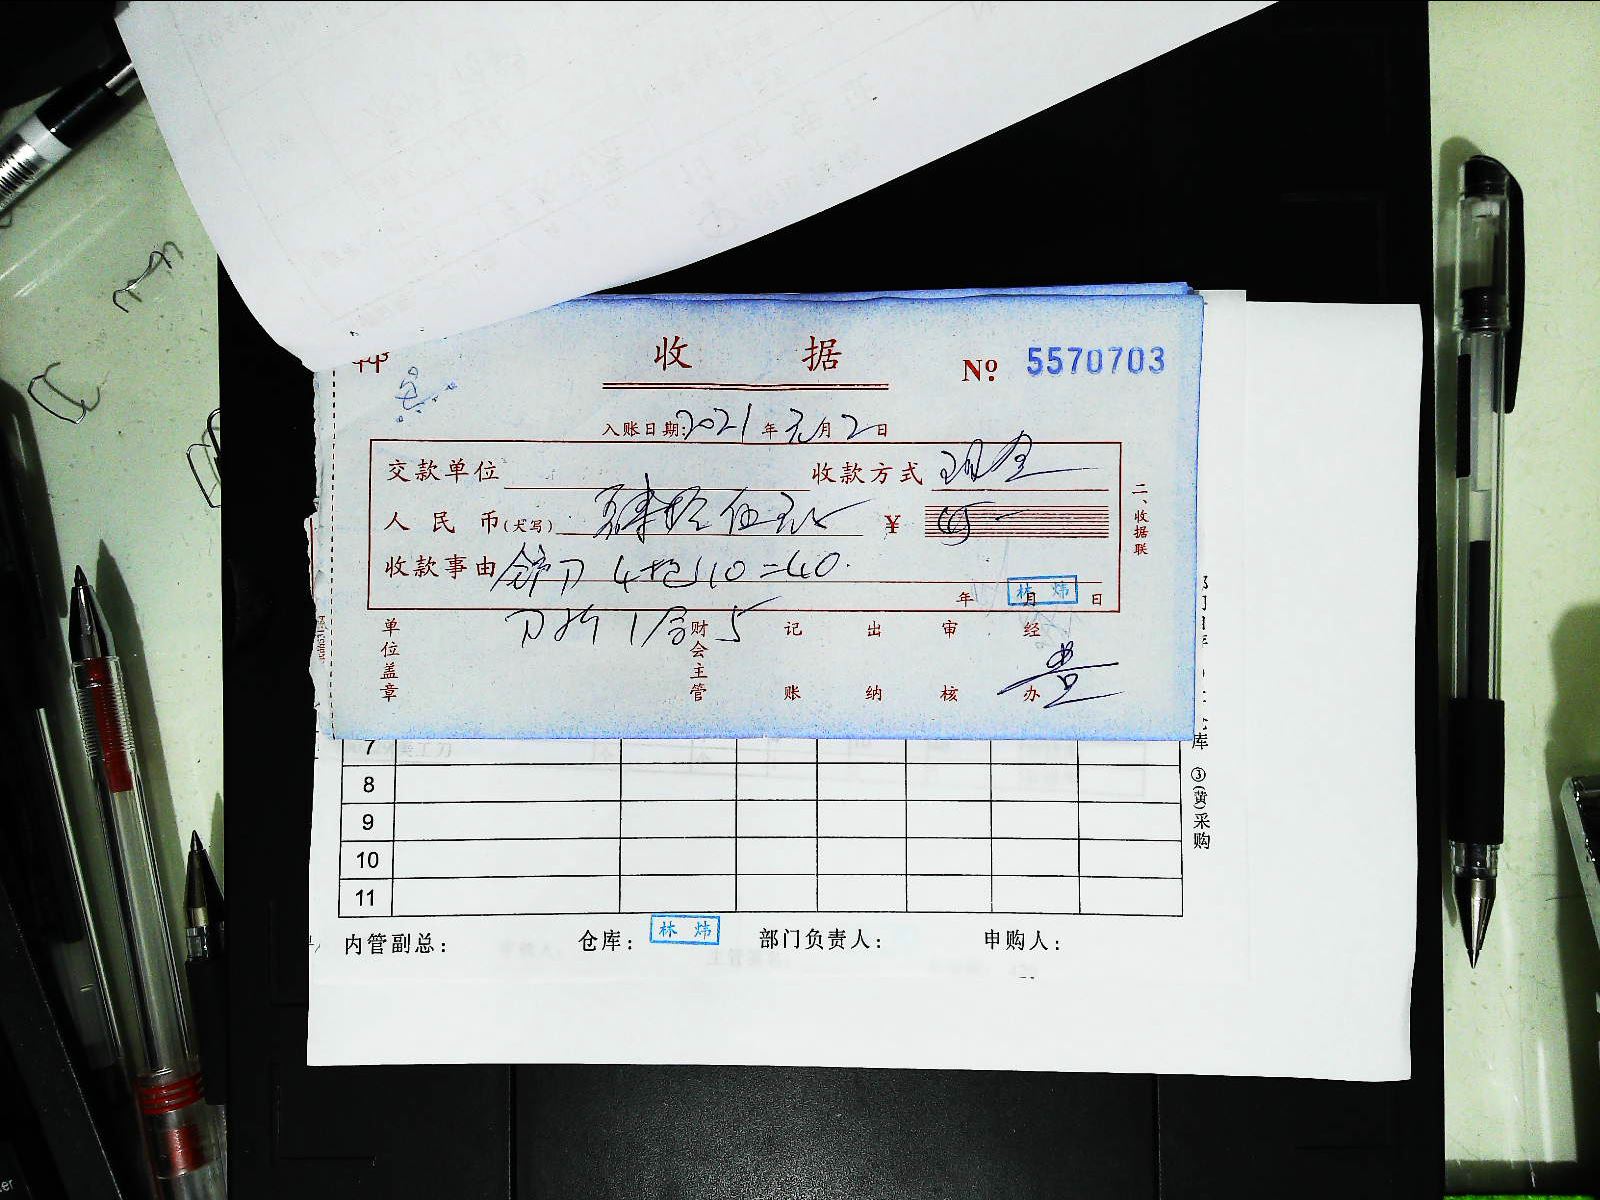 收 据
№ 5570703
入账日期:2021年元月2日
交款单位 收款方式 现金
人民币(大写) 肆拾伍元 ¥ 45-
收款事由 铲刀 4把10=40.
年 月 日
林炜
刀片 1 5
单位盖章 财会主管 记账 出纳 审核 经办
二、收据联
7
8
9
10
11
库 ③(黄)采购
内管副总: 仓库: 林炜 部门负责人: 申购人: